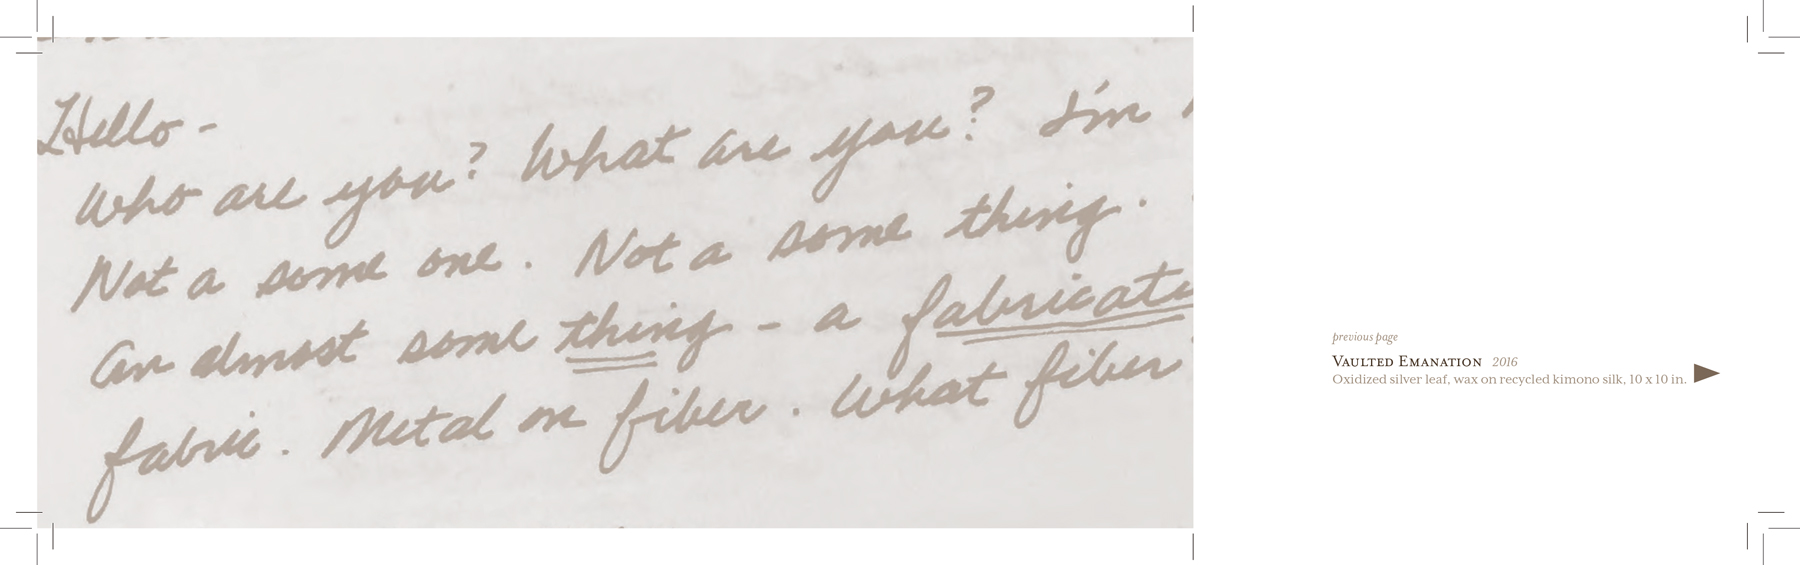 Hello -
Who are you? What are you? I'm
Not a some one. Not a some thing.
An almost some thing - a fabricate
fabric. Metal on fiber. What fiber
previous page
Vaulted Emanation 2016
Oxidized silver leaf, wax on recycled kimono silk, 10 x 10 in.